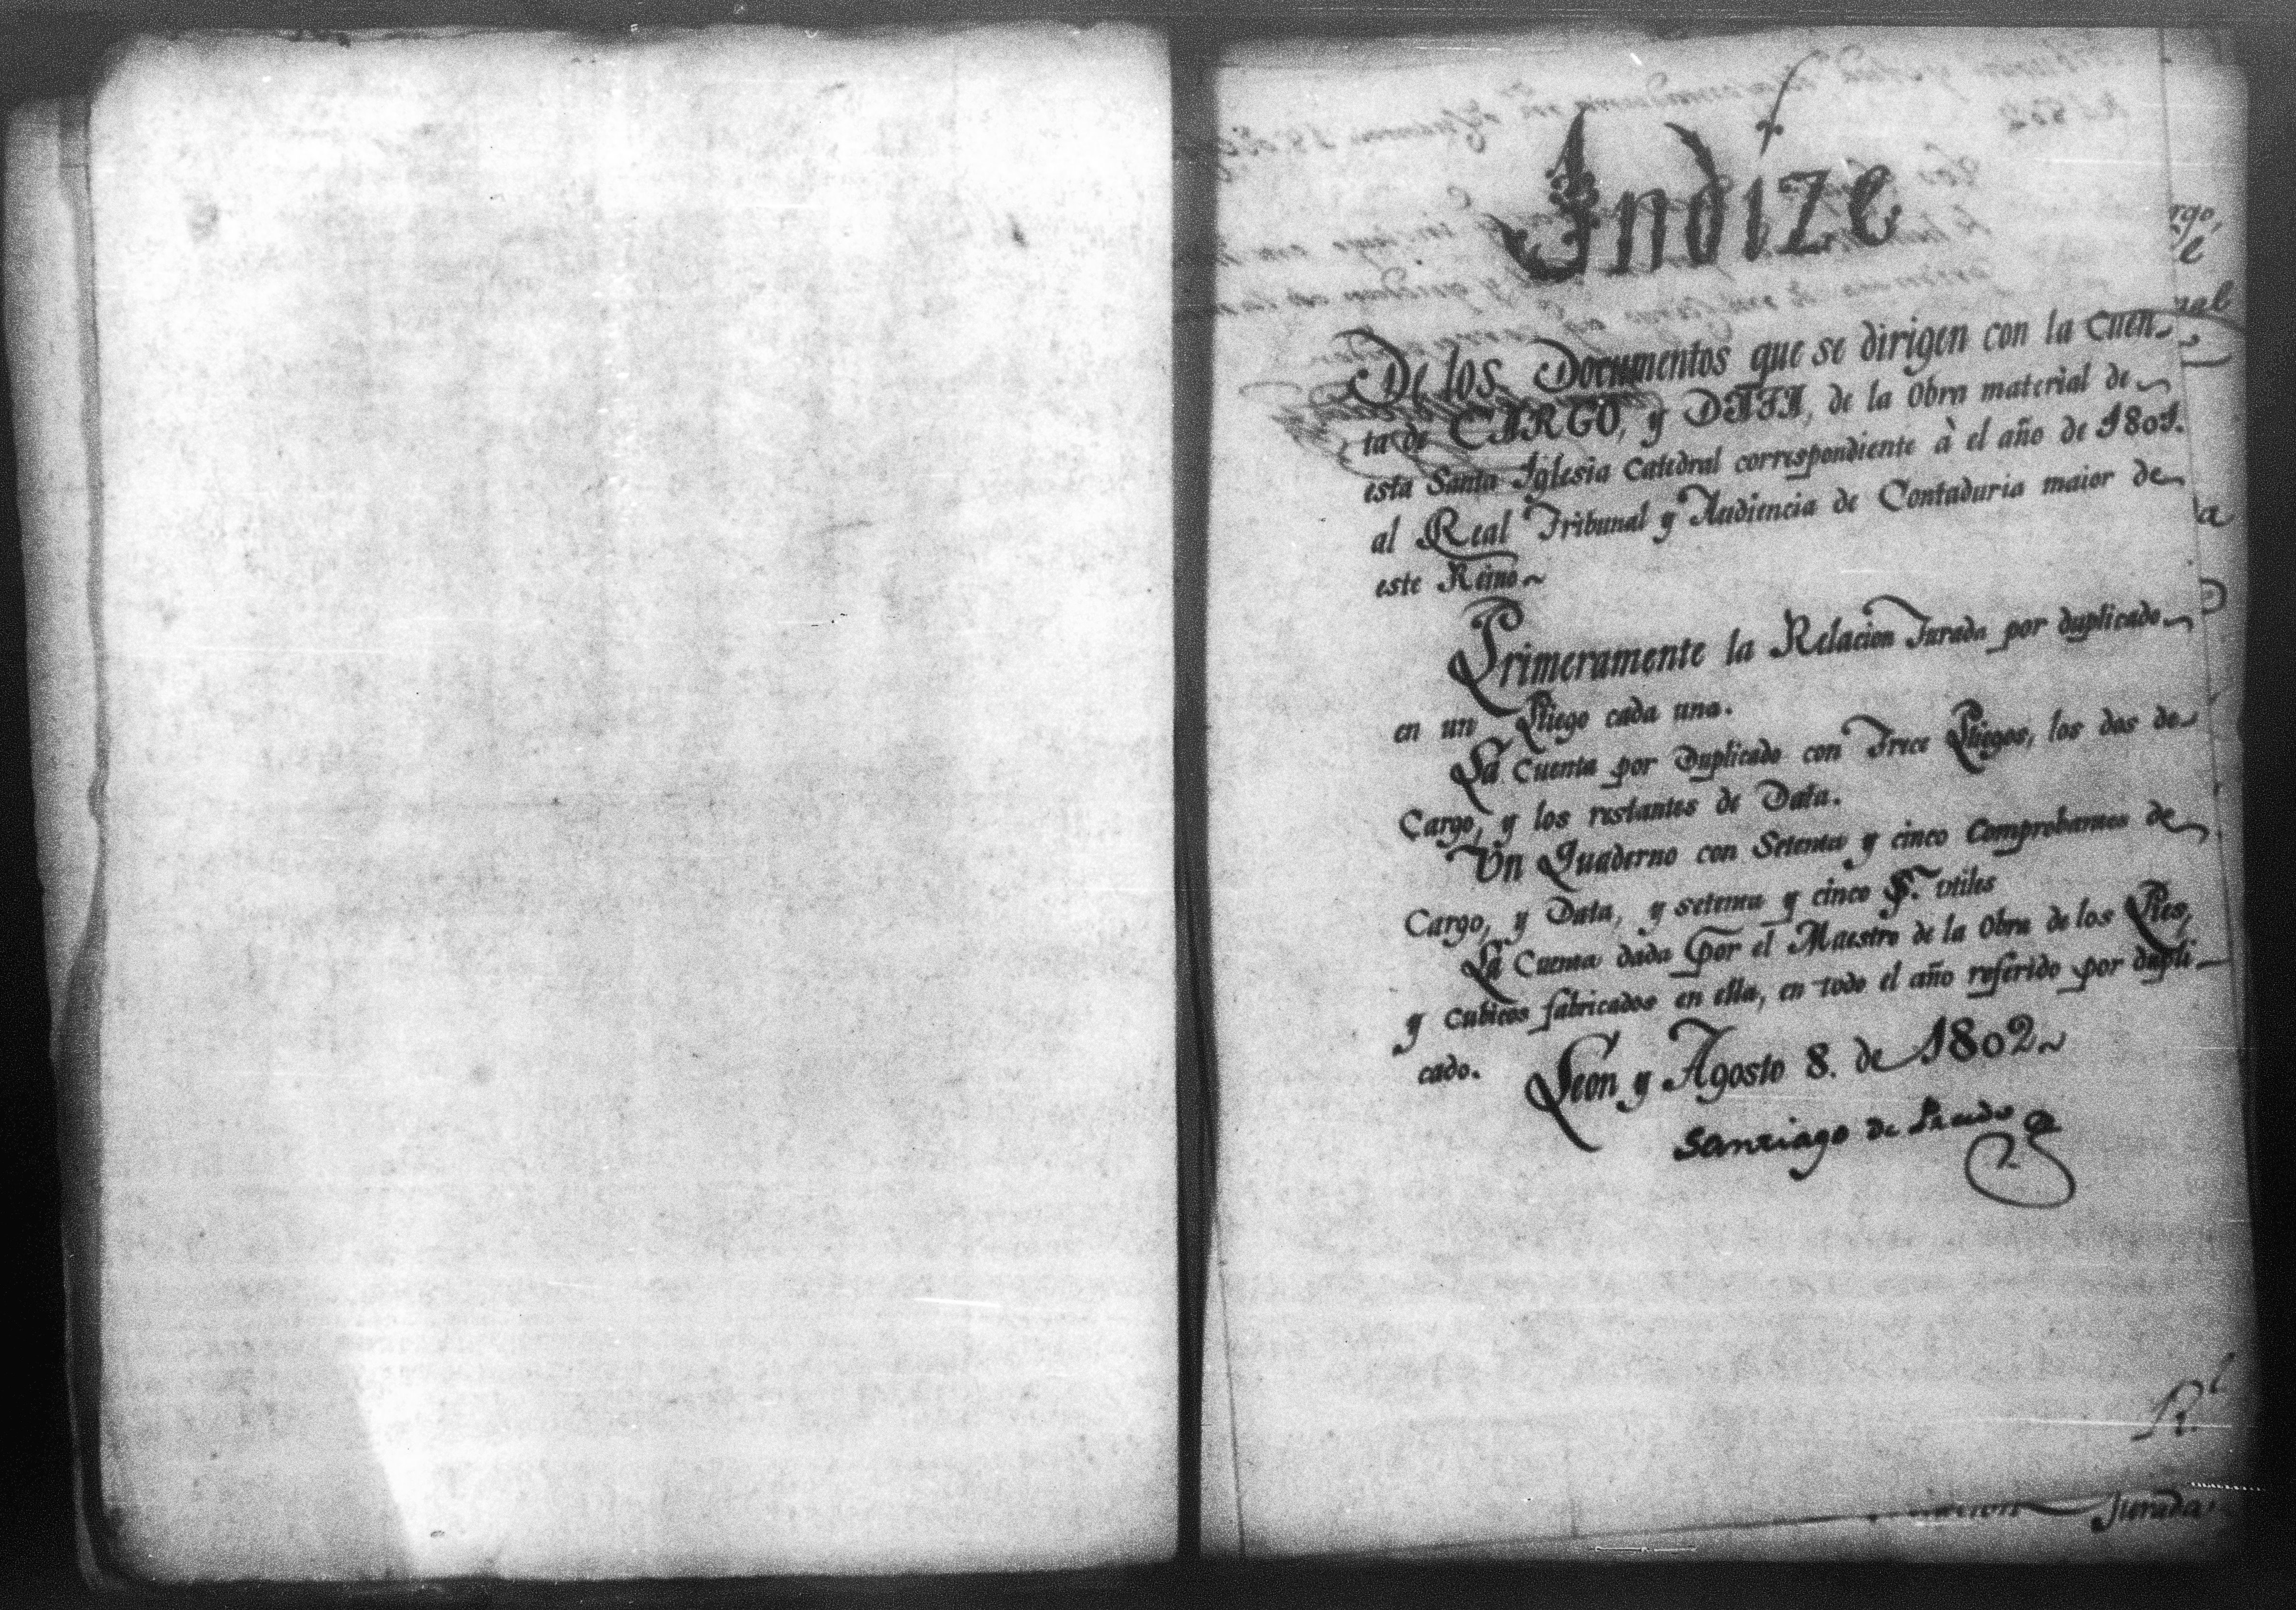 Indize
De los Documentos que se dirigen con la Cuen-
ta de CARGO, y DATA, de la Obra material de
esta Santa Iglesia Catedral correspondiente à el año de 1801.
al Real Tribunal y Audiencia de Contaduria maior de
este Reino~
Primeramente la Relacion Jurada por duplicado
en un Pliego cada una.
La Cuenta por Duplicado con Trece Pliegos, los dos de
Cargo, y los restantes de Data.
Un Quaderno con Setenta y cinco Comprobantes de
Cargo, y Data, y setenta y cinco utiles
La Cuenta dada por el Maestro de la Obra de los Pies,
y cubicos fabricados en ella, en todo el año referido por dupli-
cado.
Leon y Agosto 8. de 1802~
Santiago de Prado
Jurada